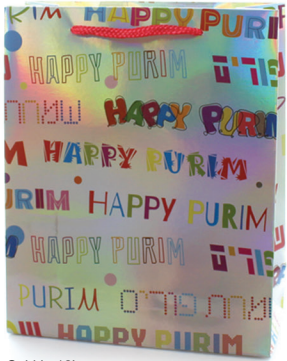 HAPPY PURIM
HAPPY PURIM פורים
שמחת HAPPY PURIM
HAPPY PURIM
PURIM HAPPY PURIM
HAPPY PURIM
PURIM שמחת פורים
HAPPY PURIM